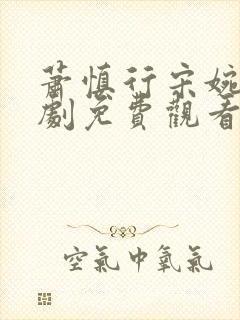 蕭慎行宋婉
劇免費觀看
空氣中氧氣